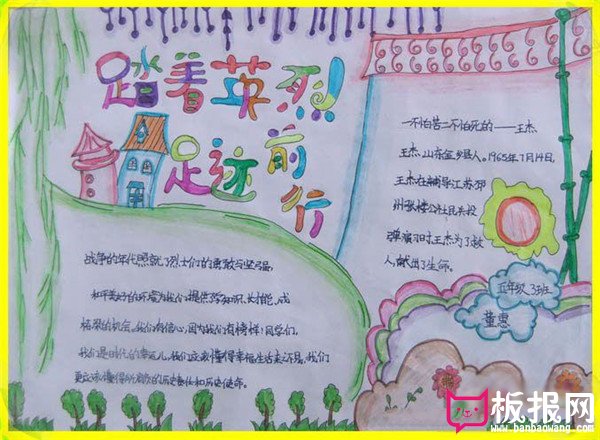 踏着英烈
足迹前行
一不怕苦二不怕死的——王杰
王杰,山东金乡县人。1965年7月14日,
王杰在辅导江苏邳
州张楼公社民兵投
弹演习时,王杰为了救
人,献出了生命。
战争的年代照就了烈士们的勇敢与坚强,
和平美好的环境为我们提供了学知识、长才能、成
栋梁的机会。我们有信心,因为我们有榜样!同学们,
我们是时代的幸运儿,我们应该懂得幸福生活来之不易,我们
更应该懂得所肩负的历史责任和历史使命。
五年级、3班
董惠
板报网
www.banbaowang.com